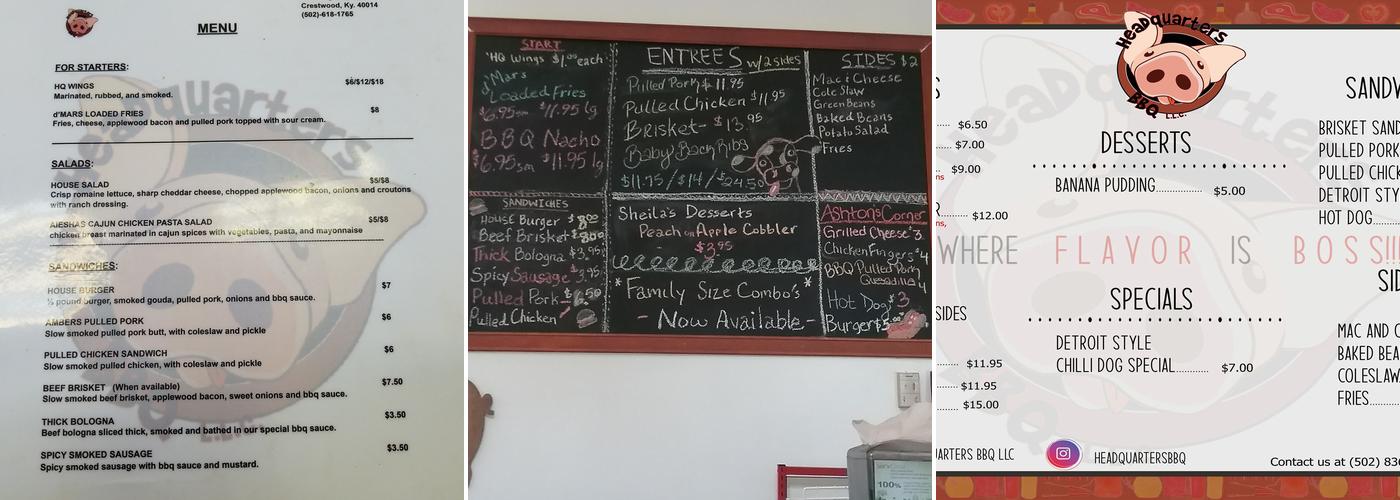 Crestwood, Ky. 40014
(502)-618-1765
MENU
FOR STARTERS:
HQ WINGS $6/$12/$18
Marinated, rubbed, and smoked.
d'MARS LOADED FRIES $8
Fries, cheese, applewood bacon and pulled pork topped with sour cream.
SALADS:
HOUSE SALAD $5/$8
Crisp romaine lettuce, sharp cheddar cheese, chopped applewood bacon, onions and croutons
with ranch dressing.
AIESHAS CAJUN CHICKEN PASTA SALAD $5/$8
chicken breast marinated in cajun spices with vegetables, pasta, and mayonnaise
SANDWICHES:
HOUSE BURGER $7
½ pound burger, smoked gouda, pulled pork, onions and bbq sauce.
AMBERS PULLED PORK $6
Slow smoked pulled pork butt, with coleslaw and pickle
PULLED CHICKEN SANDWICH $6
Slow smoked pulled chicken, with coleslaw and pickle
BEEF BRISKET (When available) $7.50
Slow smoked beef brisket, applewood bacon, sweet onions and bbq sauce.
THICK BOLOGNA $3.50
Beef bologna sliced thick, smoked and bathed in our special bbq sauce.
SPICY SMOKED SAUSAGE $3.50
Spicy smoked sausage with bbq sauce and mustard.
START
HQ Wings $1.00 each
d'Mars
Loaded Fries
$6.95sm $11.95 lg
BBQ Nacho
$6.95sm $11.95 lg
SANDWICHES
House Burger $8.00
Beef Brisket $8.00
Thick Bologna $3.95
Spicy Sausage $3.95
Pulled Pork $6.50
Pulled Chicken
ENTREES w/2 sides
Pulled Pork $11.95
Pulled Chicken $11.95
Brisket- $13.95
Baby Back Ribs
$11.75/$14/$24.50
Sheila's Desserts
Peach or Apple Cobbler
$3.95
*Family Size Combo's*
- Now Available -
SIDES $2
Mac i Cheese
Cole Slaw
Green Beans
Baked Beans
Potato Salad
Fries
Ashtons Corner
Grilled Cheese $3
Chicken Fingers $4
BBQ Pulled Pork
Quesadilla 4
Hot Dog $3
Burger $5.00
100%
Headquarters
BBQ L.L.C.
$6.50
$7.00
$9.00
$12.00
SIDES
$11.95
$11.95
$15.00
DESSERTS
BANANA PUDDING $5.00
WHERE FLAVOR IS BOSS!!!
SPECIALS
DETROIT STYLE
CHILLI DOG SPECIAL $7.00
SANDW
BRISKET SAND
PULLED PORK
PULLED CHICK
DETROIT STYL
HOT DOG
SID
MAC AND C
BAKED BEA
COLESLAW
FRIES
ARTERS BBQ LLC
HEADQUARTERSBBQ
Contact us at (502) 836